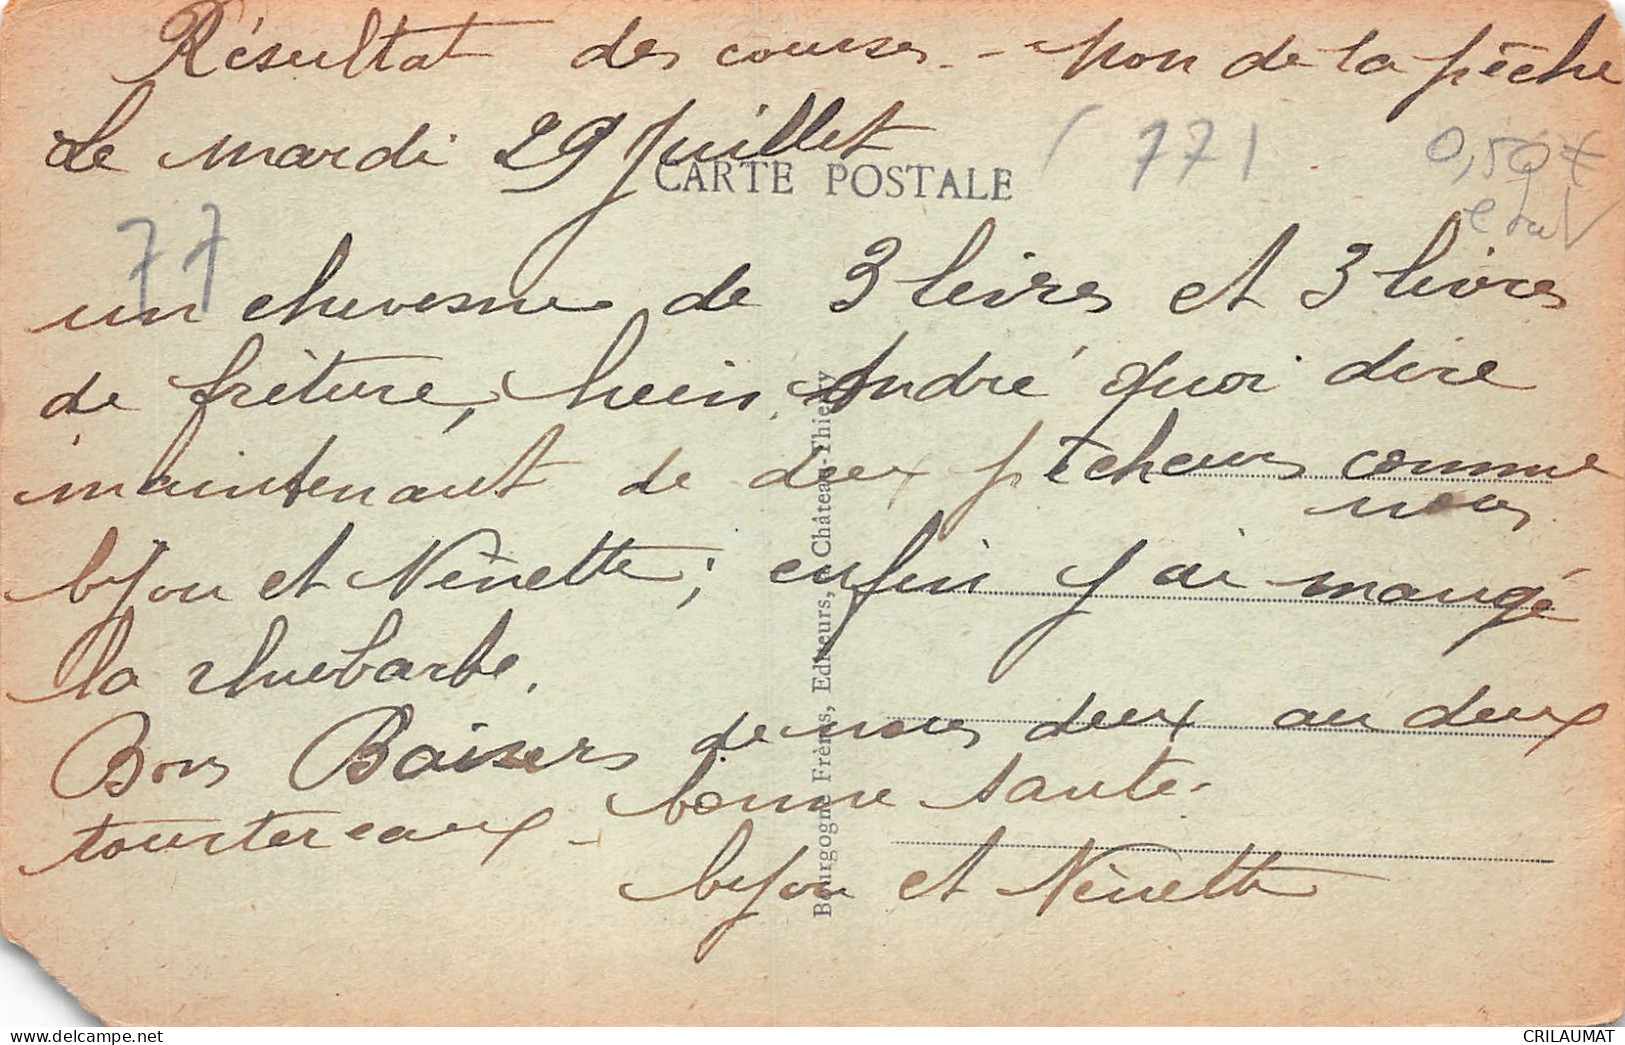 Résultat des courses - non de la pêche
Le mardi 29 Juillet
CARTE POSTALE
771
0,50 €
77
un chevesne de 3 livres et 3 livres
de friture, hein André quoi dire
maintenant de deux pêcheurs comme
nous
bijou et Nénette ; enfin j'ai mangé
la rhubarbe.
Bons Baisers de nous deux au deux
tourtereaux - bonne santé -
bijou et Nénette
Bourgogne Frères, Editeurs, Château-Thierry
CRILAUMAT